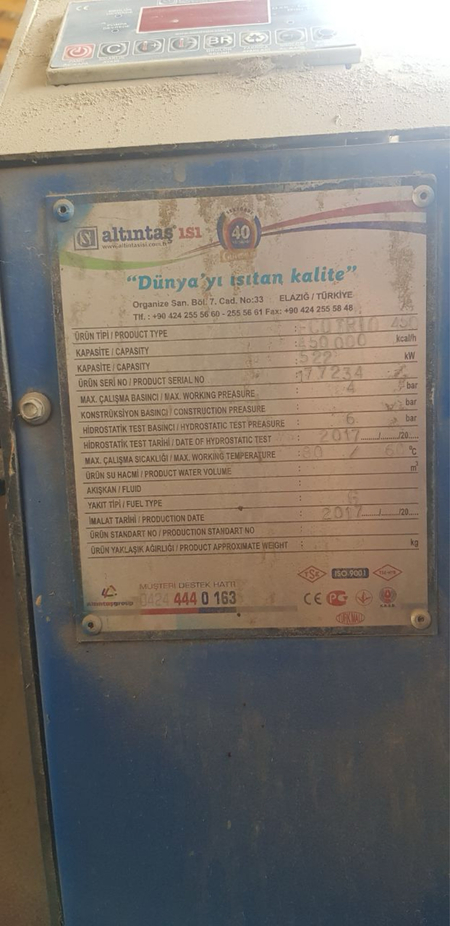 C BR
altıntaş ısı
www.altintasisi.com.tr
40
"Dünya'yı ısıtan kalite"
Organize San. Böl. 7. Cad. No:33 ELAZIĞ / TÜRKİYE
Tlf. : +90 424 255 56 60 - 255 56 61 Fax: +90 424 255 58 46
ÜRÜN TİPİ / PRODUCT TYPE : 450
KAPASİTE / CAPASITY : 450 000 kcal/h
KAPASİTE / CAPASITY : 522 kW
ÜRÜN SERİ NO / PRODUCT SERIAL NO : 77234
MAX. ÇALIŞMA BASINCI / MAX. WORKING PREASURE : 4 bar
KONSTRÜKSİYON BASINCI / CONSTRUCTION PREASURE : bar
HİDROSTATİK TEST BASINCI / HYDROSTATIC TEST PREASURE : 6 bar
HİDROSTATİK TEST TARİHİ / DATE OF HYDROSTATIC TEST : 2017 / /20
MAX. ÇALIŞMA SICAKLIĞI / MAX. WORKING TEMPERATURE : / °C
ÜRÜN SU HACMİ / PRODUCT WATER VOLUME : m³
AKIŞKAN / FLUID :
YAKIT TİPİ / FUEL TYPE : G
İMALAT TARİHİ / PRODUCTION DATE : 2017 / /20
ÜRÜN STANDART NO / PRODUCTION STANDART NO :
ÜRÜN YAKLAŞIK AĞIRLIĞI / PRODUCT APPROXIMATE WEIGHT : kg
MÜŞTERİ DESTEK HATTI
0424 444 0 163
TSE ISO 9001
CE
TÜRK MALI